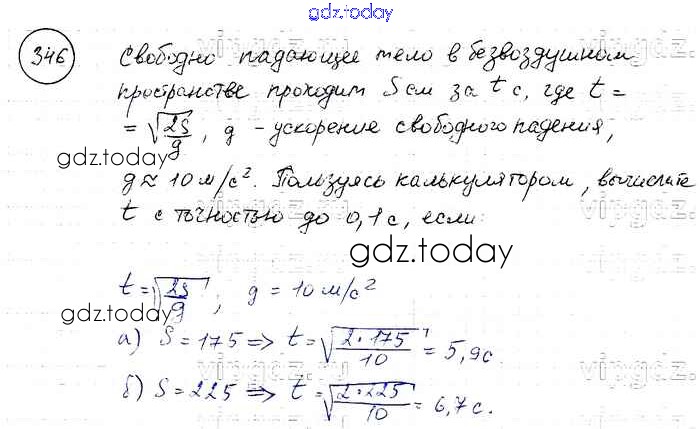 gdz.today
346
Свободно падающее тело в безвоздушном
пространстве проходит S см за t с, где t =
= √(2S/g), g - ускорение свободного падения,
gdz.today
g ≈ 10 м/с². Пользуясь калькулятором, вычислите
t с точностью до 0,1 с, если:
gdz.today
t = √(2S/g), g = 10 м/с²
gdz.today
а) S = 175 => t = √(2·175/10) = 5,9с
б) S = 225 => t = √(2·225/10) = 6,7с.